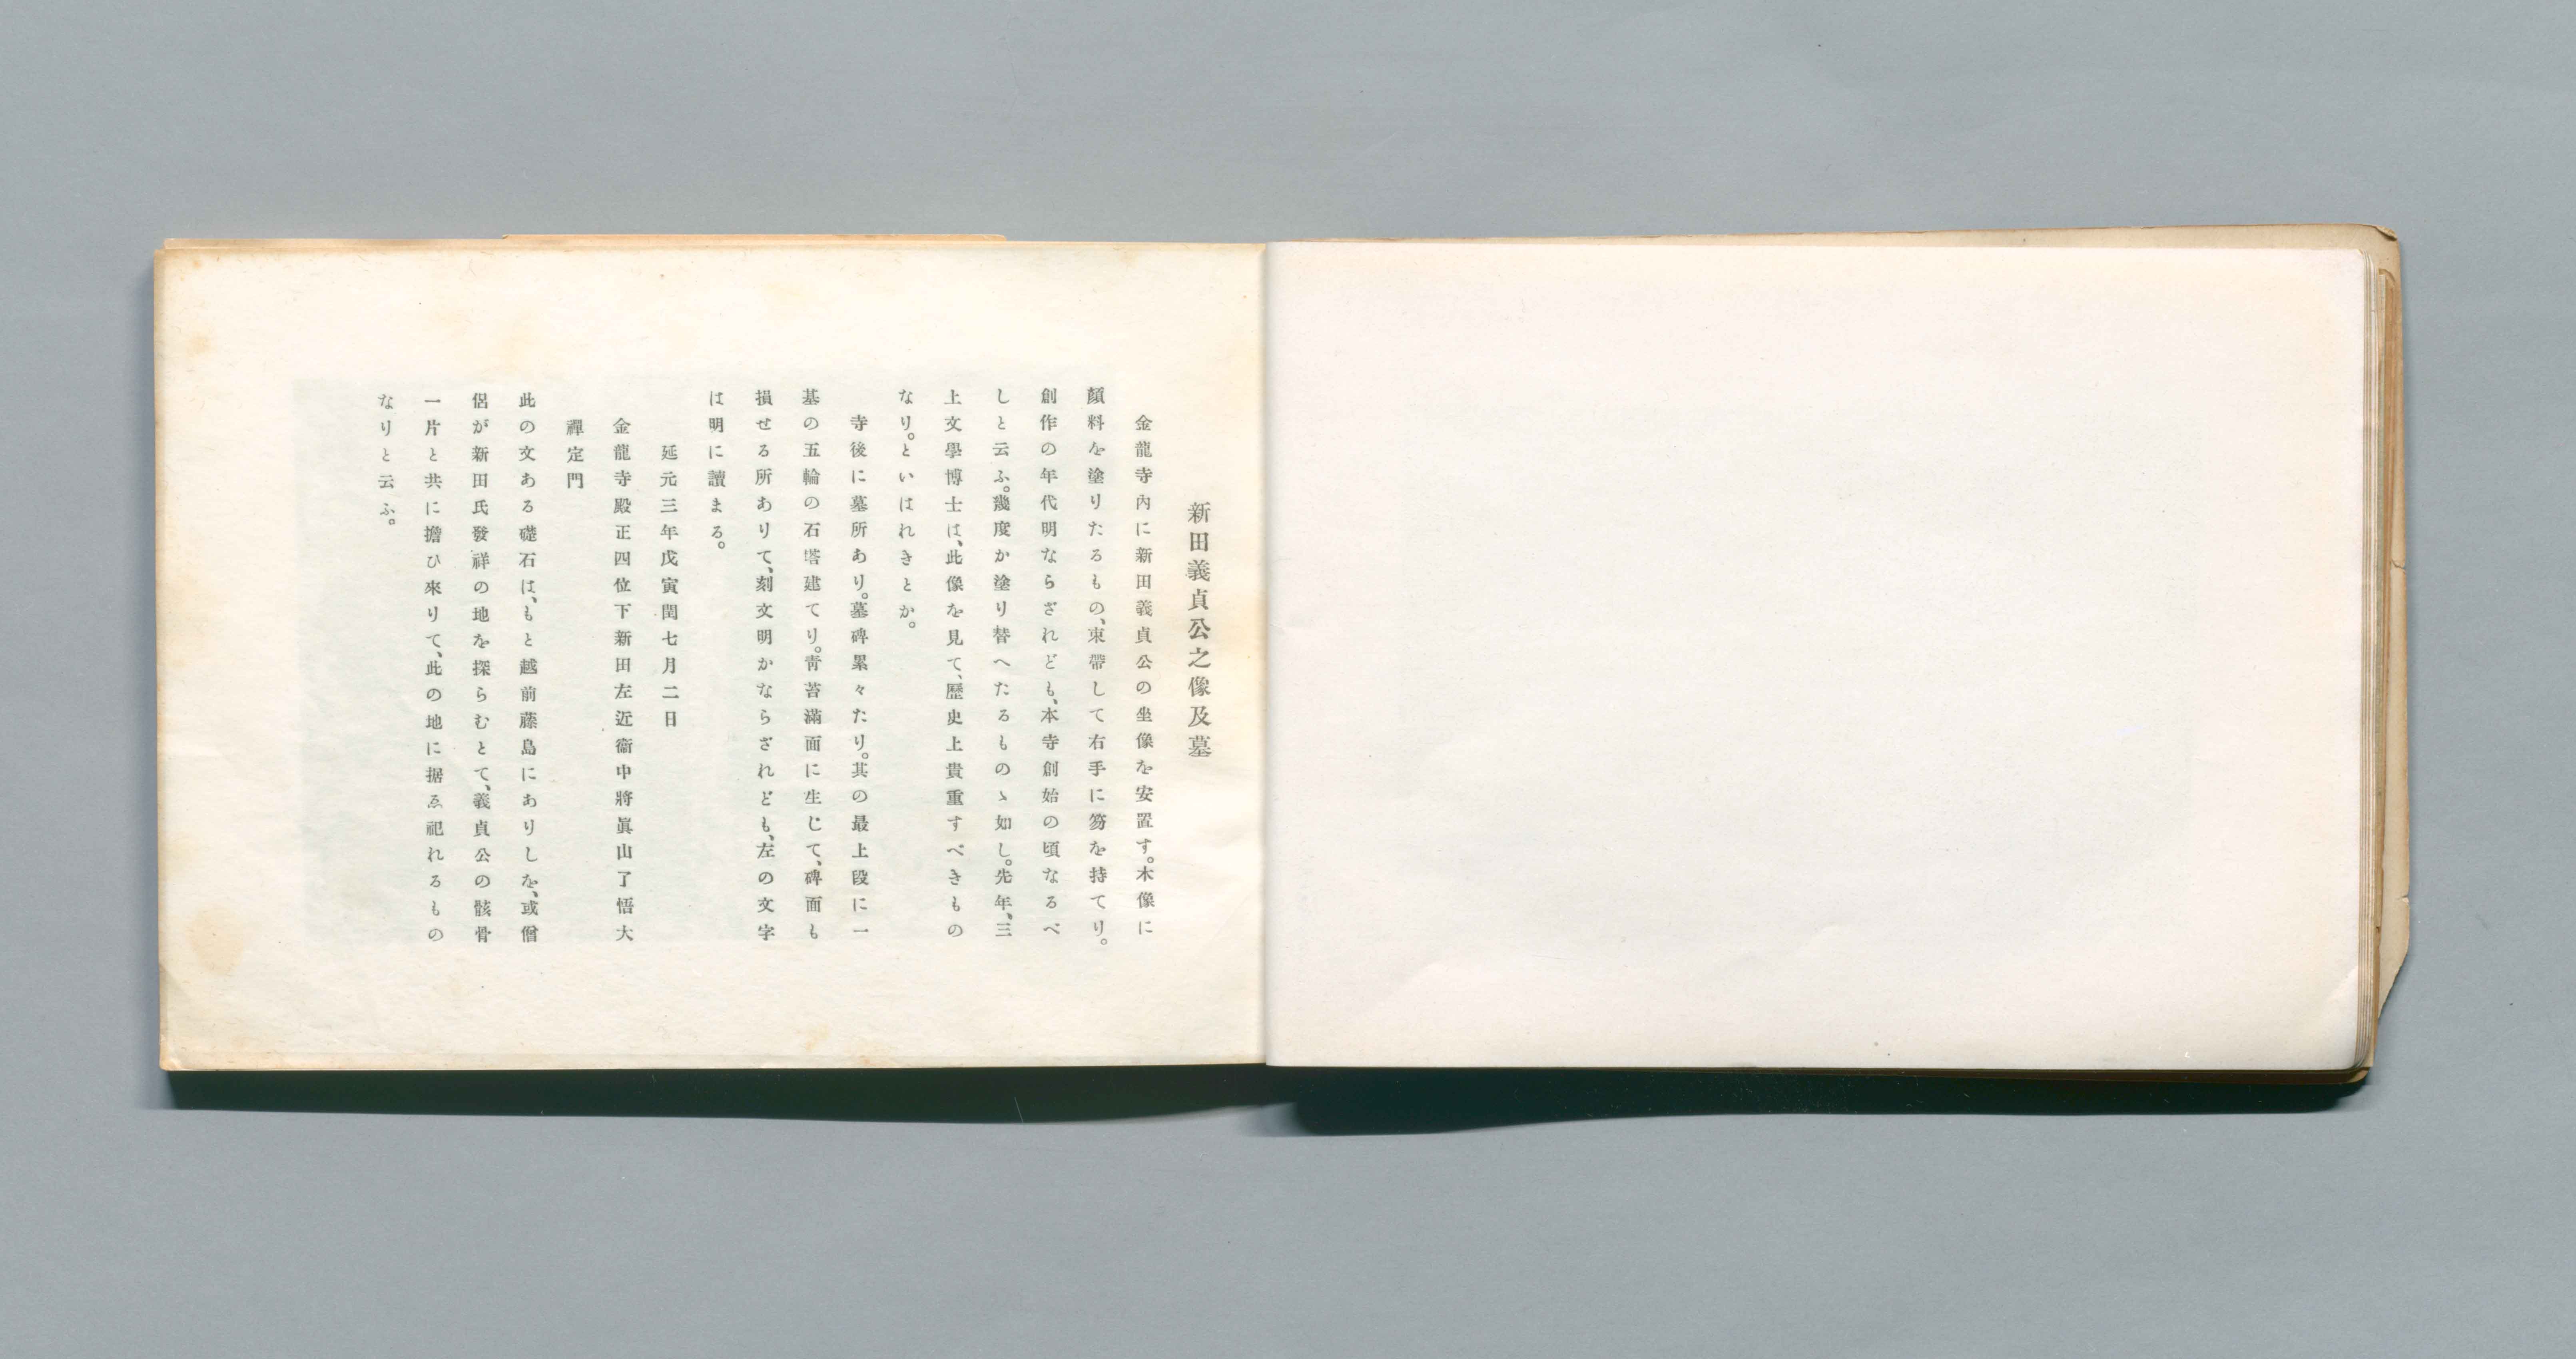 新田義貞公之像及墓
金龍寺內に新田義貞公の坐像を安置す。木像に
顏料を塗りたるもの、束帶して右手に笏を持てり。
創作の年代明ならざれども、本寺創始の頃なるべ
しと云ふ。幾度か塗り替へたるものゝ如し。先年、三
上文學博士は、此像を見て、歷史上貴重すべきもの
なり。といはれきとか。
寺後に墓所あり。墓碑累々たり。其の最上段に一
基の五輪の石塔建てり。靑苔滿面に生じて、碑面も
損せる所ありて、刻文明かならざれども、左の文字
は明に讀まる。
延元三年戊寅閏七月二日
金龍寺殿正四位下新田左近衞中將眞山了悟大
禪定門
此の文ある礎石は、もと越前藤島にありしを、或僧
侶が新田氏發祥の地を探らむとて、義貞公の骸骨
一片と共に擔ひ來りて、此の地に据ゑ祀れるもの
なりと云ふ。